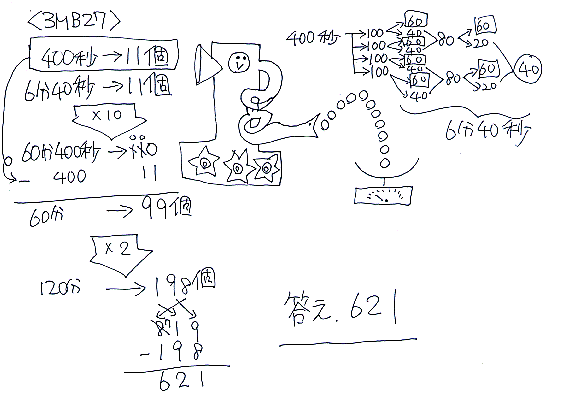 〈3MB27〉
400秒→11個
6分40秒→11個
×10
60分400秒→110
- 400 11
60分→99個
×2
120分→198個
819
-198
621
400秒
100 60 40
100 60 40
100 60 40
100 60 40
80 60 20
80 60 20
40
6分40秒
答え.621